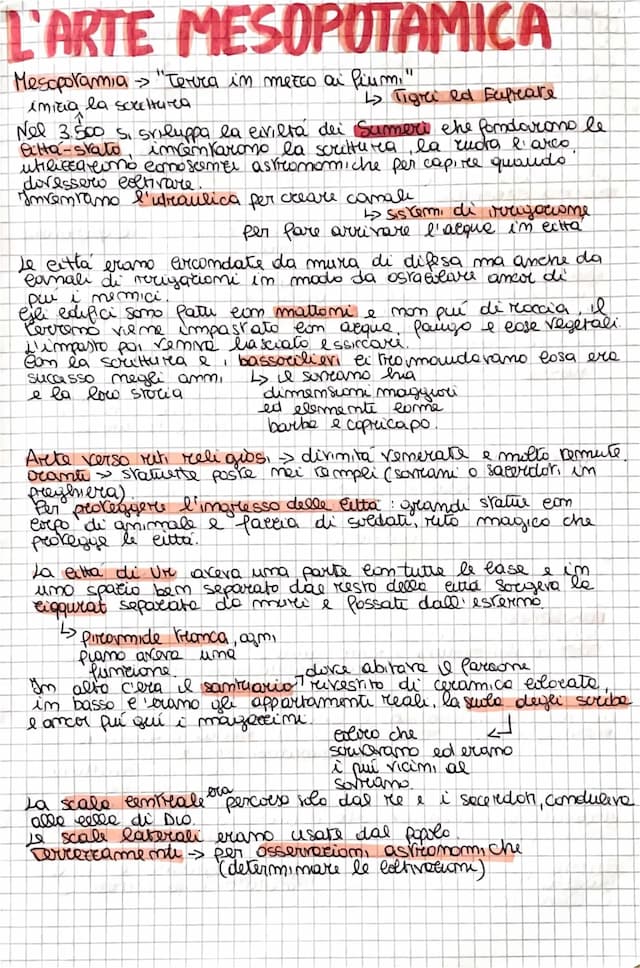 L'ARTE MESOPOTAMICA
Mesopotamia → "Terra in mezzo ai fiumi"
inizia la scrittura ↳ Tigri ed Eufrate
Nel 3.500 si sviluppa la civiltà dei Sumeri che fondarono le
città-stato, inventarono la scrittura, la ruota l'arco,
utilizzarono conoscenze astronomiche per capire quando
dovessero coltivare.
Inventano l'idraulica per creare canali
↳ sistemi di irrigazione
per fare arrivare l'acqua in città
Le città erano circondate da mura di difesa ma anche da
canali di irrigazioni in modo da ostacolare ancor di
più i nemici.
Gli edifici sono fatti con mattoni e non più di roccia, il
terreno viene impastato con acqua, fango e cose vegetali.
L'impasto poi veniva lasciato essiccare.
Con la scrittura e i bassorilievi ci tramandavano cosa era
successo negli anni ↳ il sovrano ha
e la loro storia dimensioni maggiori
ed elementi come
barba e copricapo.
Arte verso riti religiosi → divinità venerate e molto temute
oranti → statuette poste nei templi (sovrani o sacerdoti in
preghiera)
Per proteggere l'ingresso delle città: grandi statue con
corpo di animale e faccia di soldati, rito magico che
protegge le città.
La città di Ur aveva una parte con tutte le case e in
uno spazio ben separato dal resto della città sorgeva la
ziqqurat separata da muri e fossati dall'esterno
↳ piramide tronca, ogni
piano aveva una
funzione. dove abitava il faraone
In alto c'era il santuario rivestito di ceramica colorata,
in basso c'erano gli appartamenti reali, la scuola degli scribi
e ancor più giù i magazzini.
coloro che
scrivevano ed erano
i più vicini al
sovrano.
La scala centrale era percorsa solo dal re e i sacerdoti, conduceva
alle celle di Dio.
Le scale laterali erano usate dal popolo.
terrazzamenti → per osservazioni astronomiche
(determinare le coltivazioni)